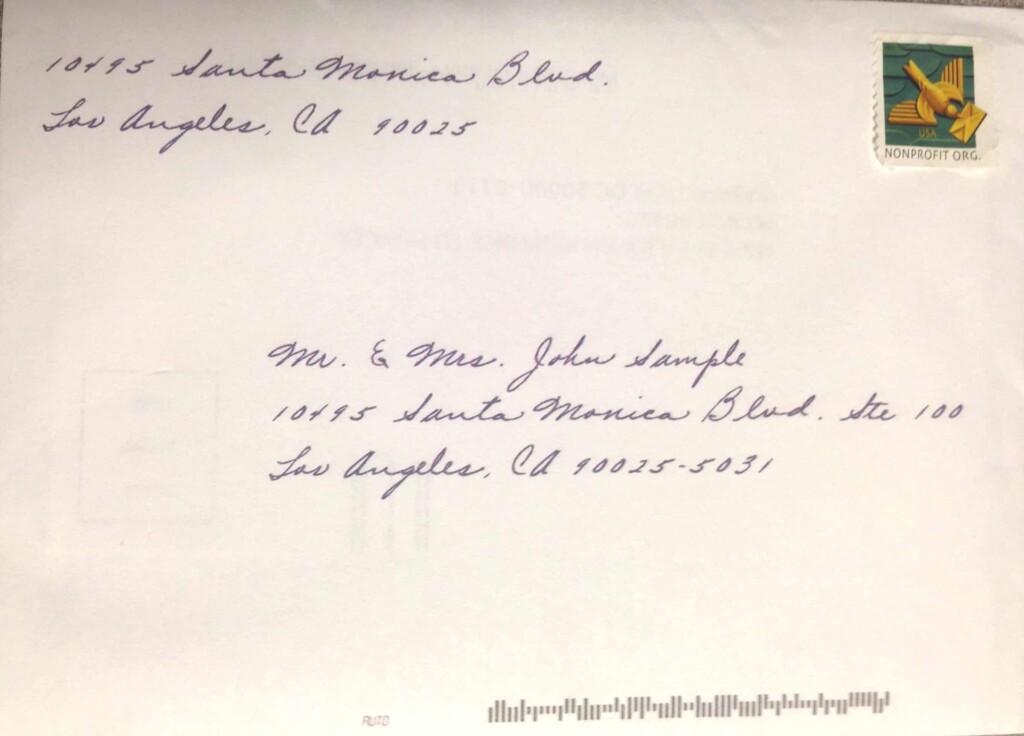 10495 Santa Monica Blvd.
Los Angeles, CA 90025
USA
NONPROFIT ORG.
Mr. & Mrs. John Sample
10495 Santa Monica Blvd. Ste 100
Los Angeles, CA 90025-5031
AUTO